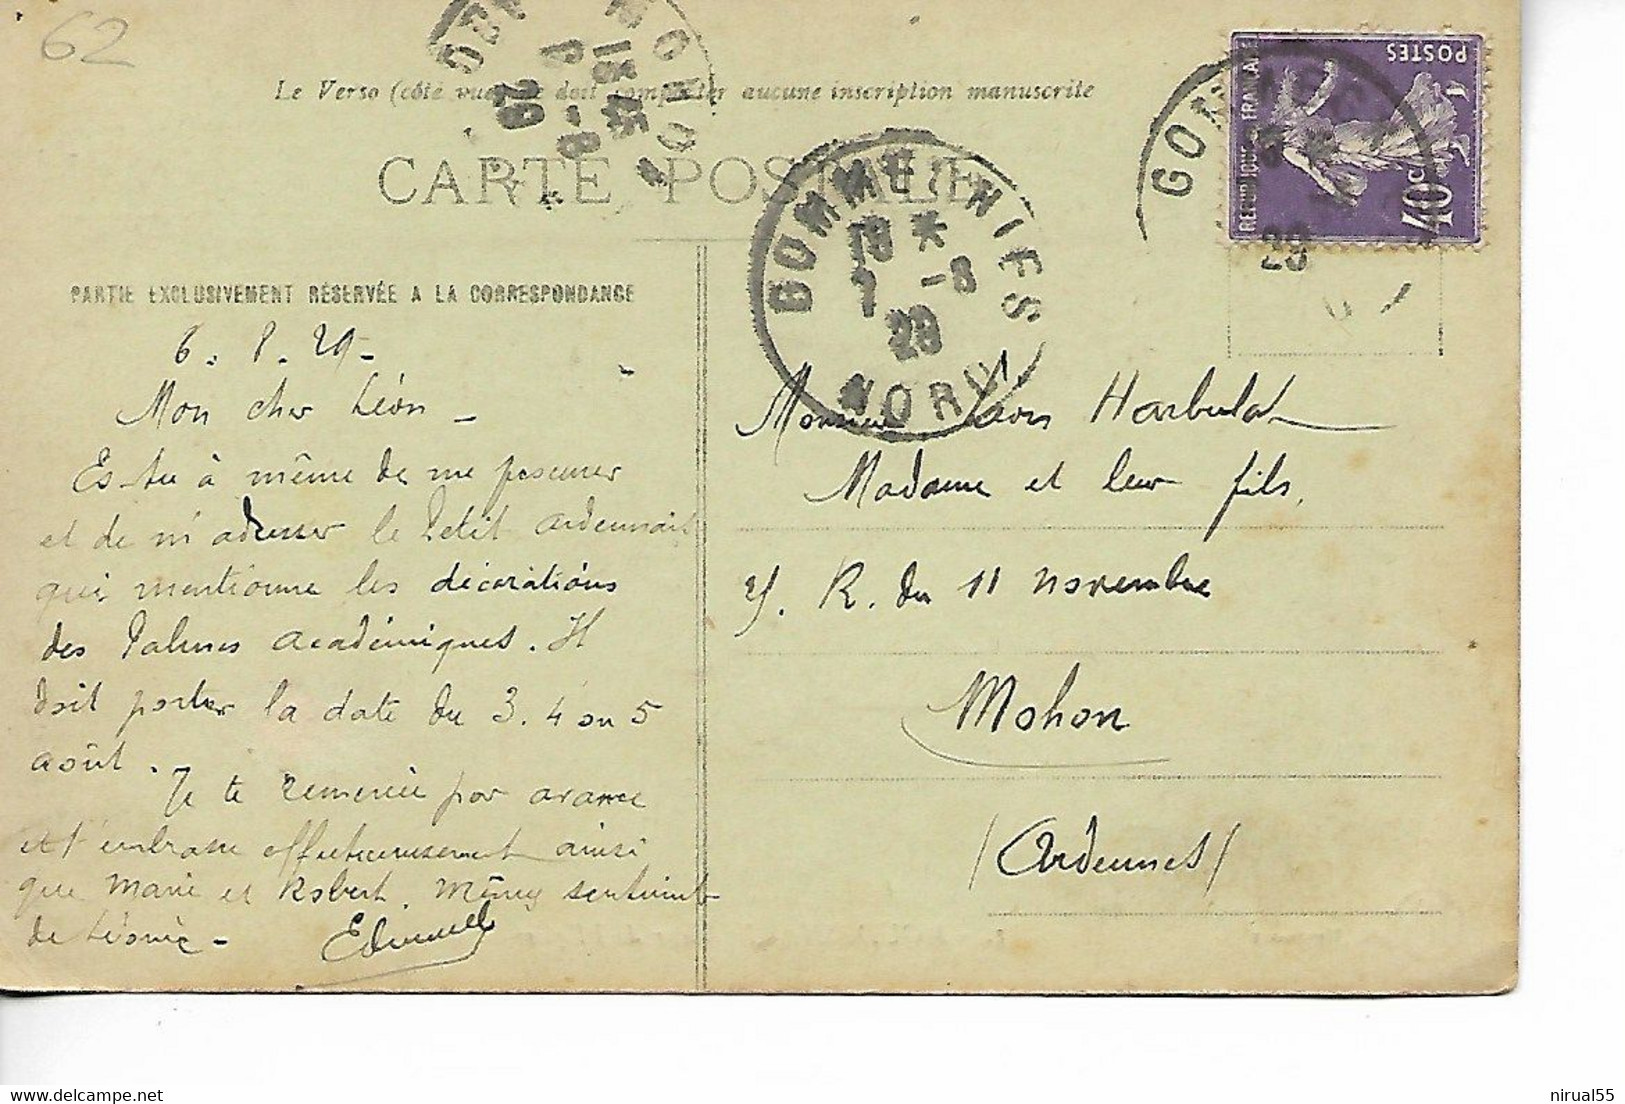 62
Le Verso (côté vue) ne doit comporter aucune inscription manuscrite
CARTE POSTALE
GOMMEGNIES
18 *
7 -8
29
NORD
18 45
29
REPUBLIQUE FRANÇAISE
POSTES
40c
29
PARTIE EXCLUSIVEMENT RÉSERVÉE A LA CORRESPONDANCE
6. 8. 29 -
Mon cher Léon -
Es-tu à même de me
et de m'adresser le Petit Ardennais
qui mentionne les décorations
des Palmes Académiques. Il
doit porter la date du 3. 4 ou 5
août.
Je te remercie par avance
et t'embrasse affectueusement ainsi
que Marie et Robert. Mêmes sentiments
de Léonie -
Monsieur Léon Harbulot
Madame et leur fils,
R. du 11 novembre
Mohon
(Ardennes)
nirual55